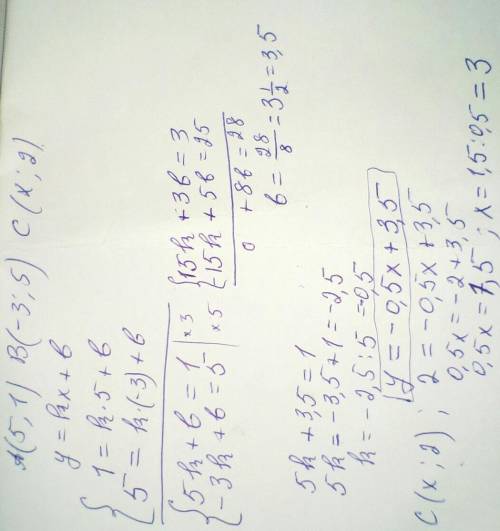 A(5; 1) B(-3; 5) C(x; 2)
y = kx + b
{ 1 = k·5 + b
5 = k·(-3) + b
{ 5k + b = 1 | ×3
-3k + b = 5 | ×5
{ 15k + 3b = 3
-15k + 5b = 25
0 + 8b = 28
b = 28/8 = 3 1/2 = 3,5
5k + 3,5 = 1
5k = -3,5 + 1 = -2,5
k = -2,5 : 5 = -0,5
y = -0,5x + 3,5
C(x; 2); 2 = -0,5x + 3,5
0,5x = -2 + 3,5
0,5x = 1,5; x = 1,5 : 0,5 = 3